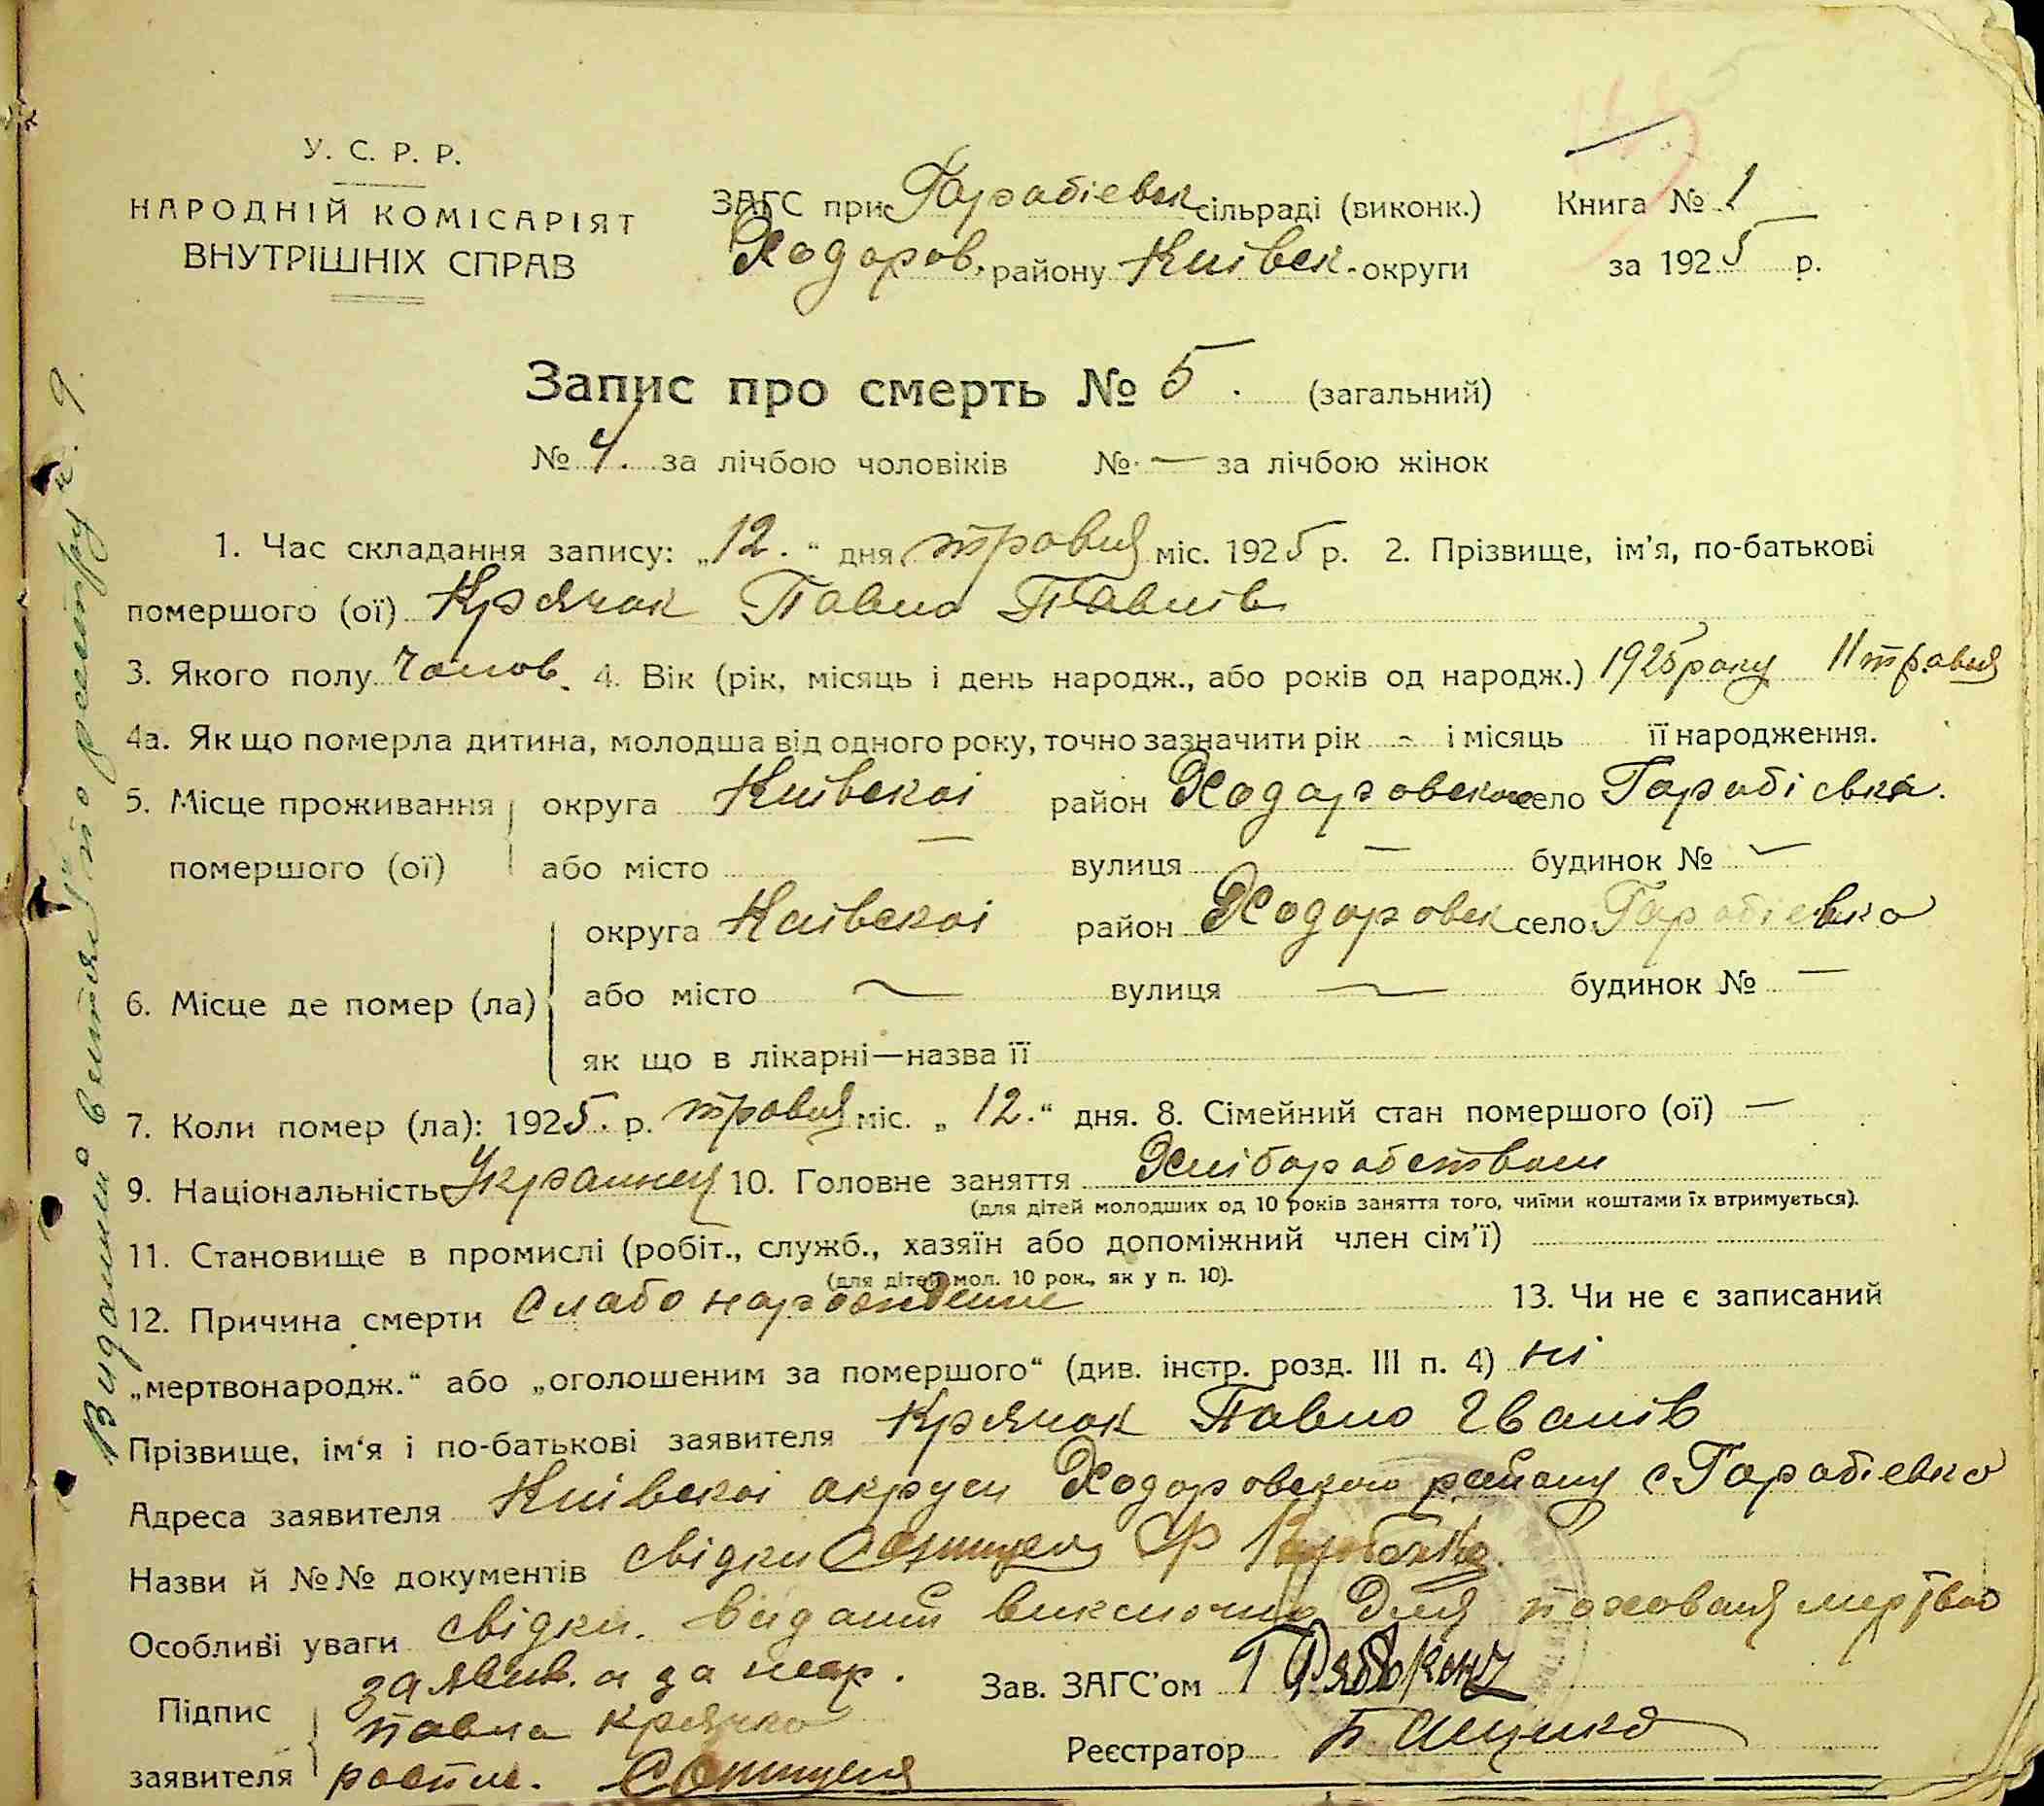 У. С. Р. Р.
НАРОДНІЙ КОМІСАРІЯТ
ВНУТРІШНІХ СПРАВ
ЗАГС при Гарабіевск сільраді (виконк.)
Ходоров. району Київск. округи
Книга № 1
за 1925 р.
Запис про смерть № 5. (загальний)
№ 4. за лічбою чоловіків № — за лічбою жінок
1. Час складання запису: „12.“ дня травня міс. 1925 р. 2. Прізвище, ім'я, по-батькові
помершого (ої) Крячок Павло Павлів
3. Якого полу Чолов. 4. Вік (рік, місяць і день народж., або років од народж.) 1925 року 11 травня
4а. Як що померла дитина, молодша від одного року, точно зазначити рік - і місяць її народження.
5. Місце проживання округа Київскоі район Ходоровского село Гарабіевка.
помершого (ої) або місто — вулиця — будинок № —
округа Київскоі район Ходоровск село Гарабіевка
6. Місце де помер (ла) або місто — вулиця — будинок № —
як що в лікарні—назва її
7. Коли помер (ла): 1925. р. травня міс. „12.“ дня. 8. Сімейний стан помершого (ої) —
9. Національність Украинец 10. Головне заняття Хліборобством
(для дітей молодших од 10 років заняття того, чиїми коштами їх втримується).
11. Становище в промислі (робіт., служб., хазяїн або допоміжний член сім'ї)
(для дітей мол. 10 рок., як у п. 10).
12. Причина смерти Слабо нарождение 13. Чи не є записаний
„мертвонародж.“ або „оголошеним за помершого“ (див. інстр. розд. III п. 4) ні
Прізвище, ім'я і по-батькові заявителя Крячок Павло Іванів
Адреса заявителя Київскоі округи Ходоровского району с Гарабіевка
Назви й №№ документів свідки
Особливі уваги свідки. видані виключно для поховання мертвого
Підпис заявив. а за неар.
павла крячка
заявителя роспис.
Зав. ЗАГС'ом
Реєстратор
Виданий витяг по реєстру ч. 9.